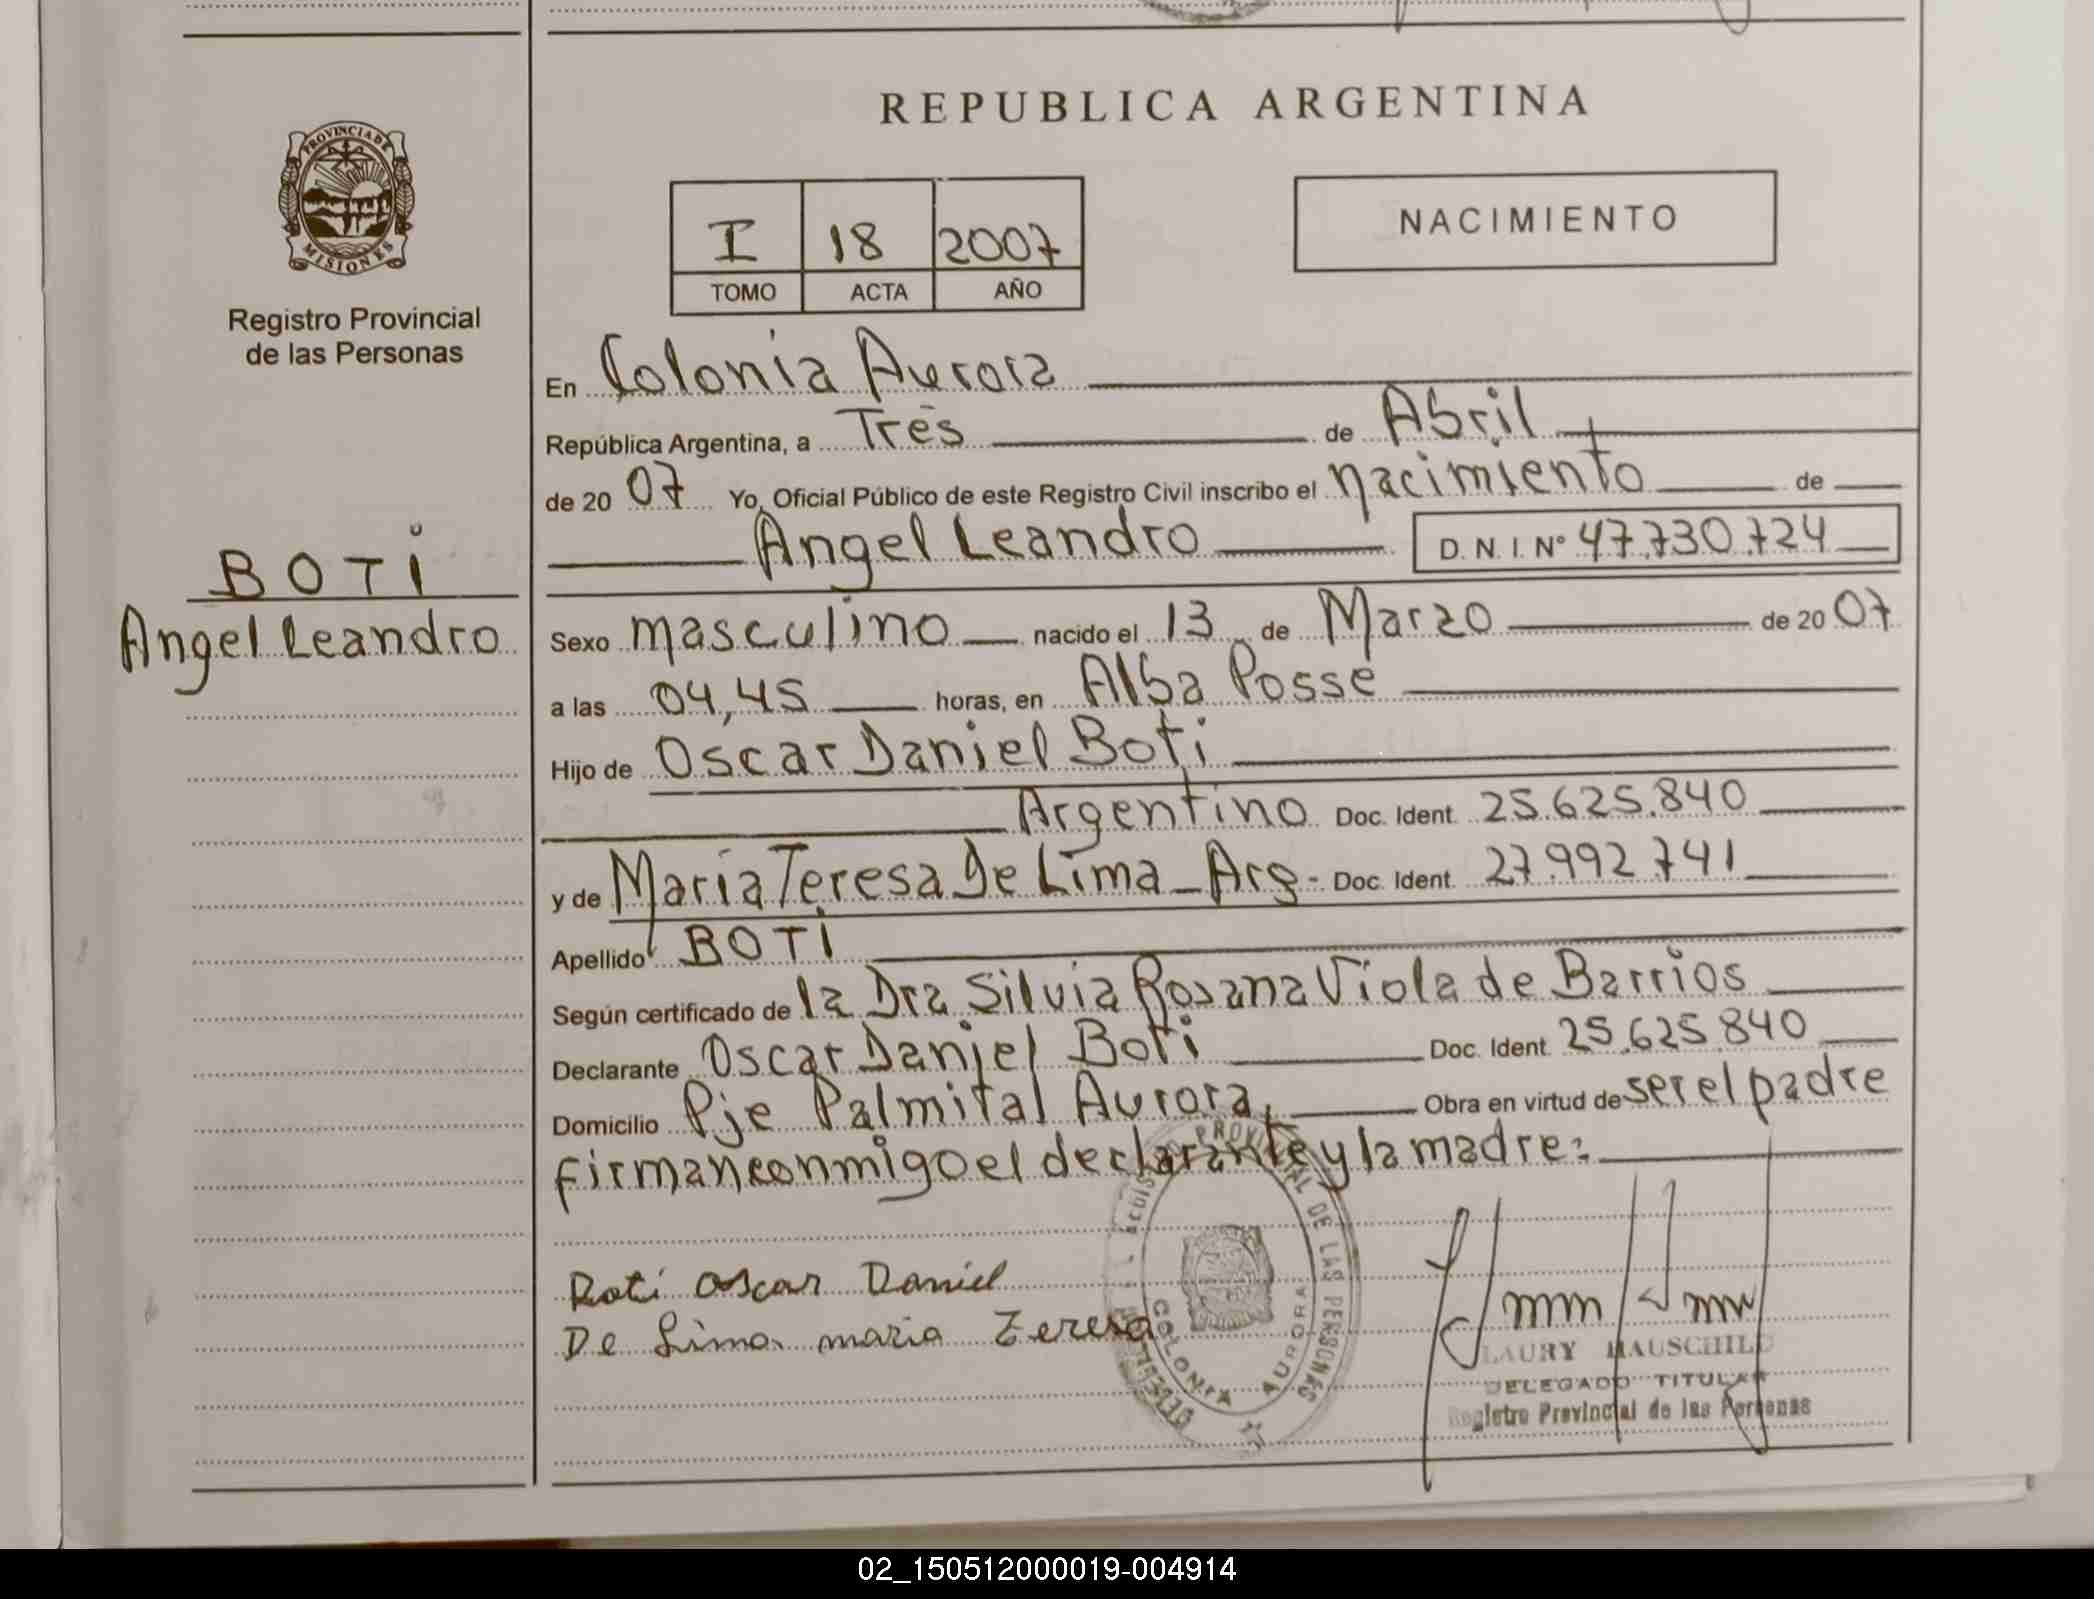 REPUBLICA ARGENTINA
PROVINCIA DE
MISIONES
Registro Provincial
de las Personas
I 18 2007
TOMO ACTA AÑO
NACIMIENTO
En Colonia Aurora
República Argentina, a Tres de Abril
de 20 07 Yo, Oficial Público de este Registro Civil inscribo el nacimiento de
Angel Leandro D. N. I. Nº 47.730.724
BOTi
Angel Leandro
Sexo masculino nacido el 13 de Marzo de 20 07
a las 04,45 horas, en Alba Posse
Hijo de Oscar Daniel Boti
Argentino Doc. Ident. 25.625.840
y de Maria Teresa De Lima _ Arg - Doc. Ident. 27.992.741
Apellido BOTi
Según certificado de la Dra Silvia Rosana Viola de Barrios
Declarante Oscar Daniel Boti Doc. Ident. 25.625.840
Domicilio Pje Palmital Aurora, Obra en virtud de ser el padre
firman conmigo el declarante y la madre:
Boti Oscar Daniel
De Lima maria Teresa
PROVINCIAL DE LAS PERSONAS
COLONIA AURORA
LAURY HAUSCHILD
DELEGADO TITULAR
Registro Provincial de las Personas
02_150512000019-004914